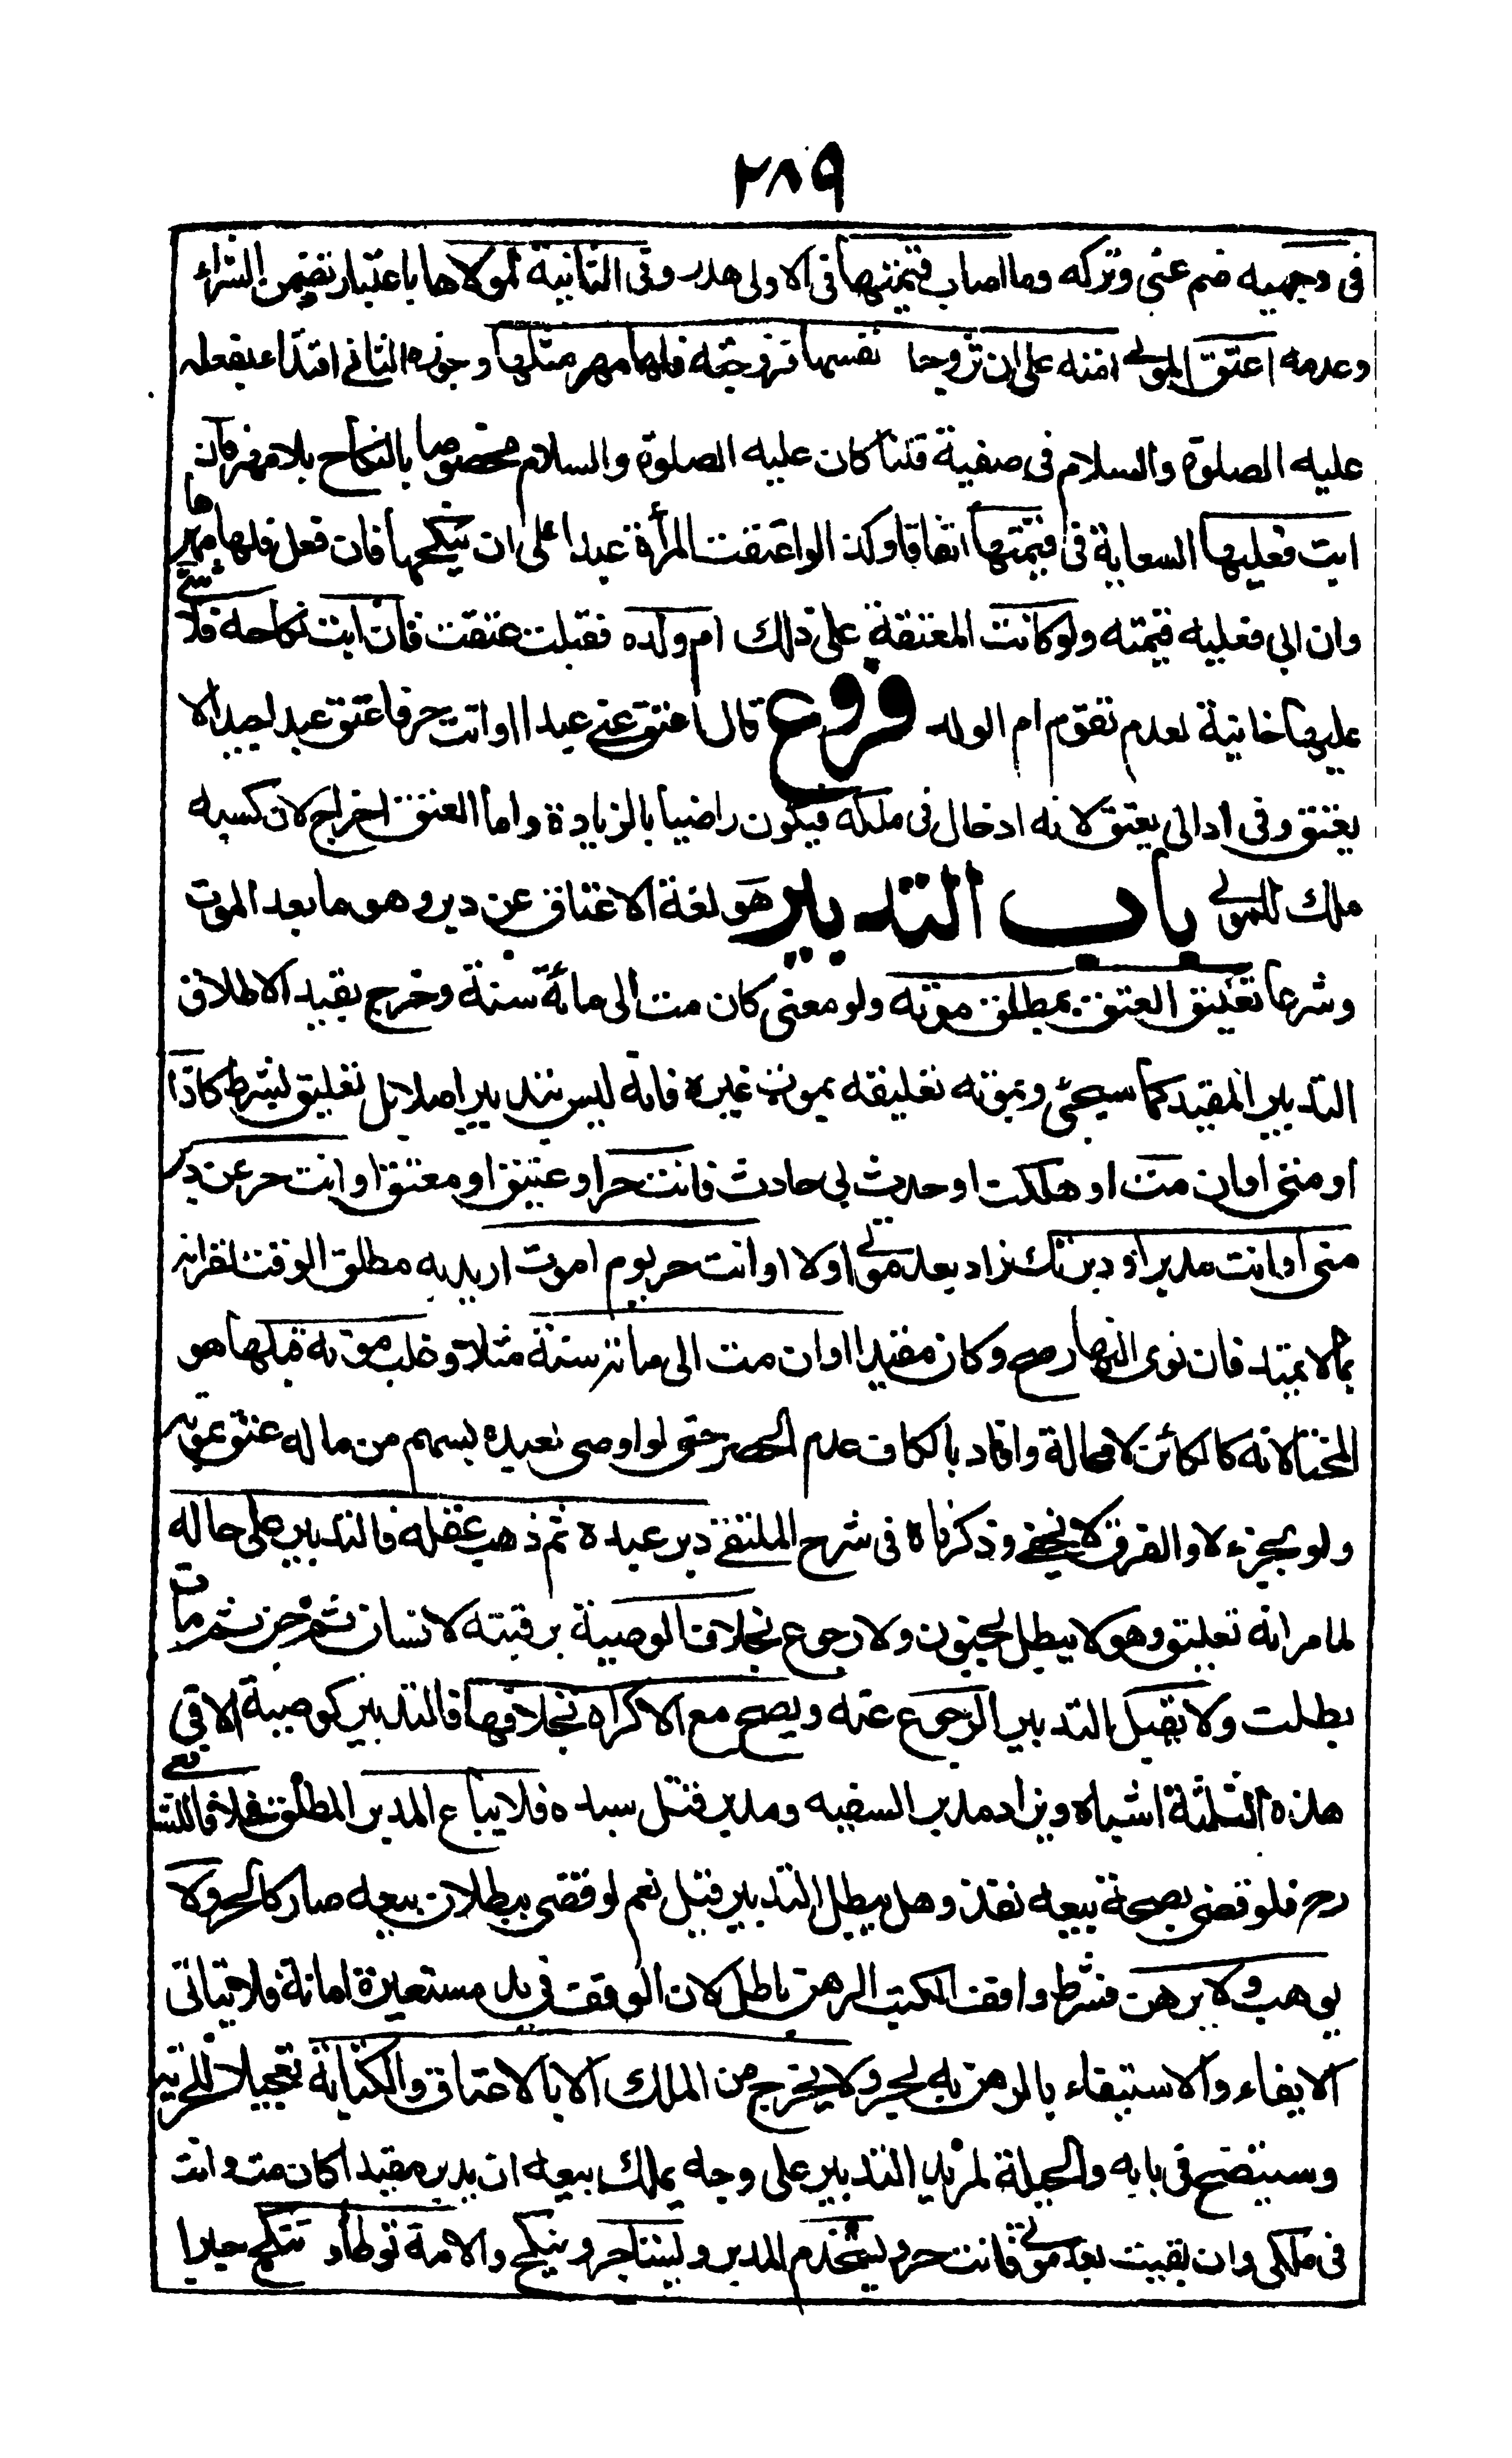 ٢٨٩
فى وجهيه ضم عنى وتركه وما اصاب قيمتها فى الاولى هدر وفى الثانية لمولاها باعتبار تضمن الشراء
وعدمه اعتق المولى امته على ان تزوجا نفسها فزوجته فلها مهر مثلها وجوزه الثانى اقتداء بفعله
عليه الصلوة والسلام فى صفية قلنا كان عليه الصلوة والسلام مخصوصا بالنكاح بلا مهر فان
ابت فعليها السعاية فى قيمتها اتفاقا وكذا لو اعتقت المرأة عبدا على ان ينكحها فان فعل فلها مهرها
وان ابى فعليه قيمته ولو كانت المعتقة على ذلك ام ولده فقبلت عتقت فان ابت نكاحه فلا شئ
عليها خانية لعدم تقوم ام الولد فروع قال اعتق عنى عبدا وانت حر فاعتق عبدا جيدا لا
يعتق وفى اد الى يعتق لانه ادخال فى ملكه فيكون راضيا بالزيادة واما العتق اخراج لان كسبه
ملك للمولى باب التدبير هو لغة الاعتاق عن دبر وهو ما بعد الموت
وشرعا تعليق العتق بمطلق موته ولو معنى كان مت الى مائة سنة وخرج بقيد الاطلاق
التدبير المقيد كما سيجئ وبموته تعليقه بموت غيره فانه ليس بتدبير اصلا بل تعليق بشرط كاذا
او متى او ان مت او هلكت او حدث بى حادث فانت حر او عتيق او معتق او انت حر عن دبر
منى او انت مدبر او دبرتك زاد بعد موتى اولا او انت حر يوم اموت اريد به مطلق الوقت لقرانه
بما لا يمتد فان نوى النهار صح وكان مقيدا او ان مت الى مائة سنة مثلا وغلب موته قبلها هو
المختار لانه كالكائن لا محالة وافاد بالكاف عدم الحصر حتى لو اوصى لعبده بسهم من ماله عتق بموته
ولو بجزء لا والفرق لا يخفى وذكرناه فى شرح الملتقى دبر عبده ثم ذهب عقله فالتدبير على حاله
لما مر انه تعليق وهو لا يبطل بجنون ولا رجوع بخلاف الوصية برقبته لانسان ثم جن ثم مات
بطلت ولا يقبل التدبير الرجوع عنه ويصح مع الاكراه بخلافها فالتدبير كوصية الا فى
هذه الثلثة اشباه ويزاد مدبر السفيه ومدبر قتل سيده فلا يباع المدبر المطلق خلافا للشافعى
رح فلو قضى بصحة بيعه نفذ وهل يبطل التدبير قيل نعم لو قضى ببطلان بيعه صار كالحر ولا
يوهب ولا يرهن فشرط واقف الكتب الرهن باطل لان الوقف فى يد مستعيره امانة فلا يتاتى
الايفاء والاستيفاء بالرهن به بحر ولا يخرج من الملك الا بالاعتاق والكتابة تعجيلا للحرية
وسيتضح فى بابه والحيلة لمريد التدبير على وجه يملك بيعه ان يدبر مقيدا كان مت وانت
فى ملكى وان بقيت بعد موتى فانت حر ويستخدم المدبر ويستاجر وينكح والامة توطأ و تنكح جبرا